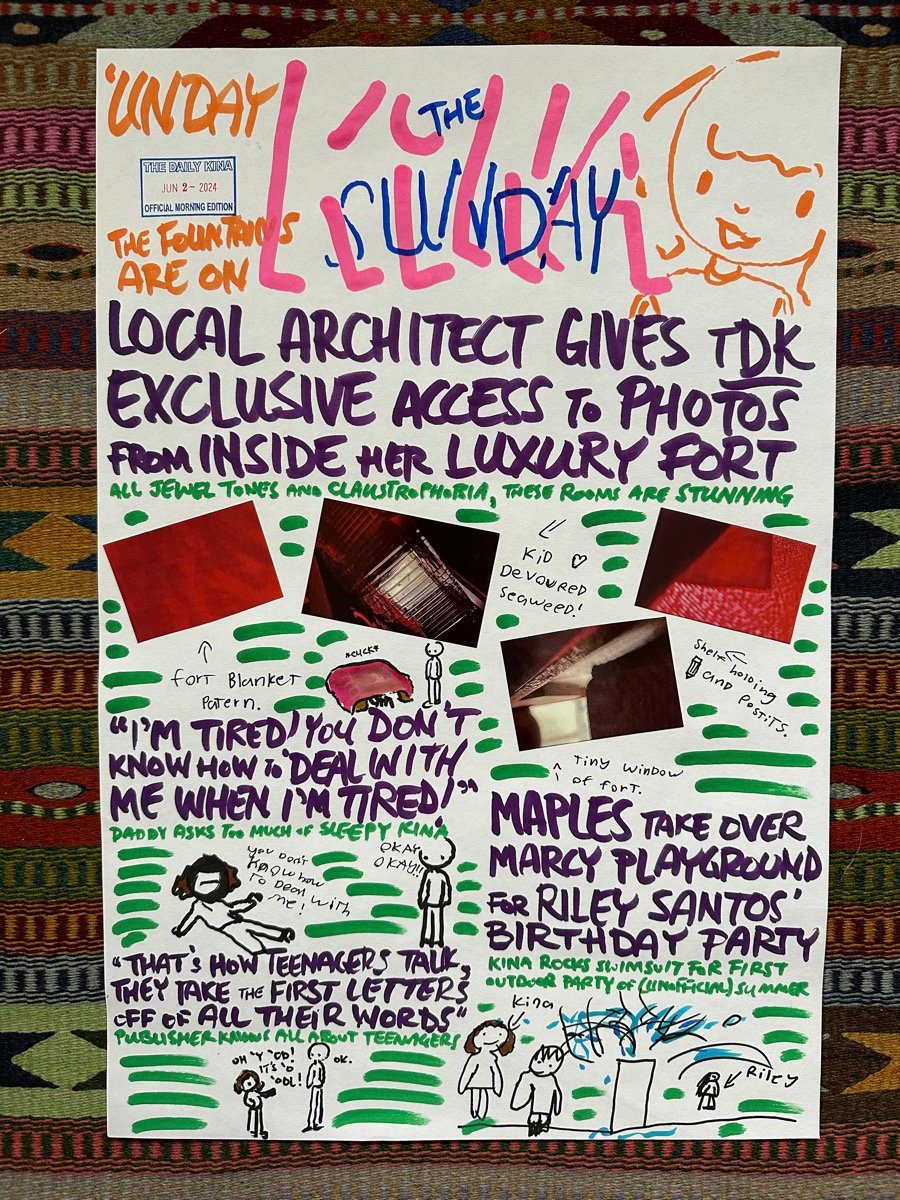 'UNDAY
THE
SUNDAY
THE DAILY KINA
JUN 2 - 2024
OFFICIAL MORNING EDITION
THE FOUNTAINS
ARE ON
LOCAL ARCHITECT GIVES TDK
EXCLUSIVE ACCESS TO PHOTOS
FROM INSIDE HER LUXURY FORT
ALL JEWEL TONES AND CLAUSTROPHOBIA, THESE ROOMS ARE STUNNING
KiD ♡
DEVOURED
SEaWEED!
↑
fort Blanket
Patern.
Shelf holding
and Postits.
↑ Tiny window
of fort.
*CLICK*
"I'M TIRED! YOU DON'T
KNOW HOW TO DEAL WITH
ME WHEN I'M TIRED!"
DADDY ASKS TOO MUCH OF SLEEPY KINA
you Don't
KNOW how
To Deal with
me!
OKAY
OKAY!!
MAPLES TAKE OVER
MARCY PLAYGROUND
FOR RILEY SANTOS'
BIRTHDAY PARTY
KINA ROCKS SWIMSUIT FOR FIRST
OUTDOOR PARTY OF (UNOFFICIAL) SUMMER
Kina
Riley
"THAT'S HOW TEENAGERS TALK,
THEY TAKE THE FIRST LETTERS
OFF OF ALL THEIR WORDS"
PUBLISHER KNOWS ALL ABOUT TEENAGERS
OH 'Y 'OD!
IT'S 'O
'OOL!
OK.